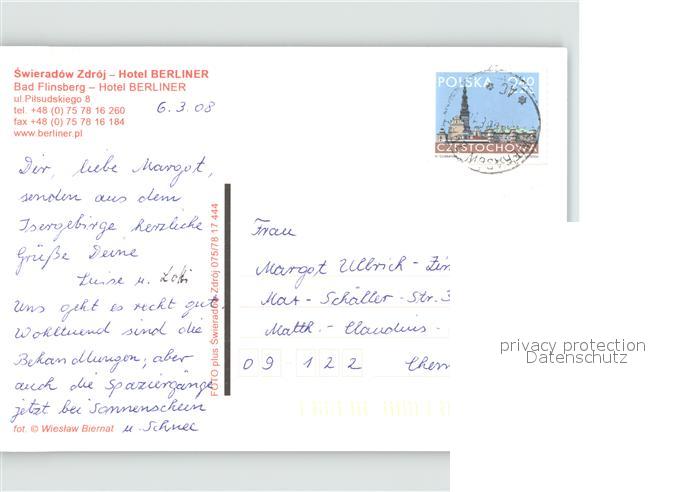 Świeradów Zdrój – Hotel BERLINER
Bad Flinsberg – Hotel BERLINER
ul.Piłsudskiego 8
tel. +48 (0) 75 78 16 260
fax +48 (0) 75 78 16 184
www.berliner.pl
6.3.08
Dir, liebe Margot,
senden aus dem
Isergebirge herzliche
Grüße Deine
Luise u.
Uns geht es recht gut.
Wohltuend sind die
Behandlungen, aber
auch die Spaziergänge
jetzt bei Sonnenschein
u. Schnee
fot. © Wiesław Biernat
FOTO plus Świeradów Zdrój 075/78 17 444
POLSKA
CZĘSTOCHOWA
Frau
Margot Ullbrich-
Max-Schäller-Str. 3
Matth.-Claudius-
09 122 Chem
privacy protection
Datenschutz